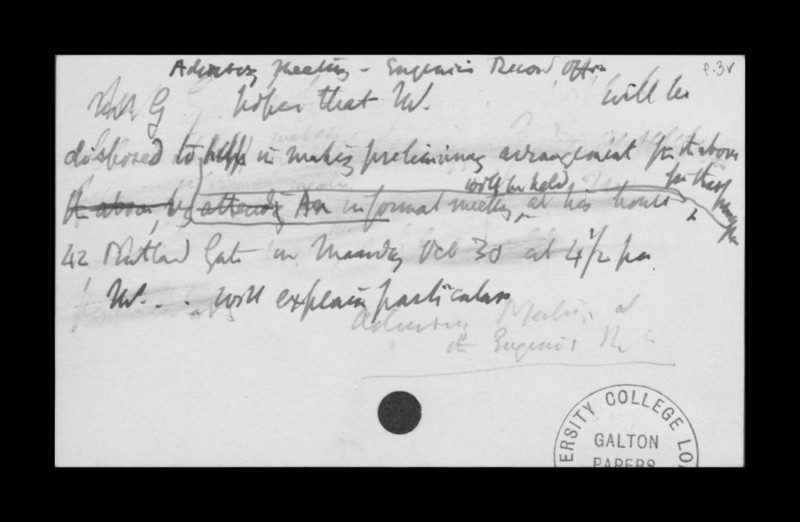 Advisory Meeting - Eugenics Record Office
p. 3v
G hopes that Mr. will be
disposed to help in making preliminary arrangement for the above
the above, by attending An informal meeting will be held at his house, for this
42 Rutland Gate on Monday Oct 30 at 4 1/2 pm
Mr. . . will explain particulars
Advisory Meeting at
the Eugenics R
ERSITY COLLEGE LO
GALTON
PAPERS